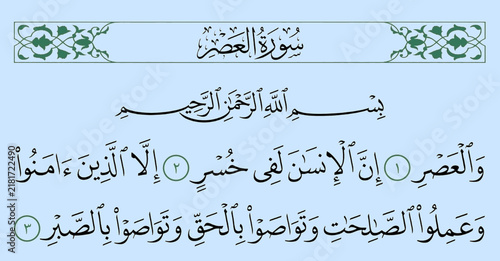 سُورَةُ الْعَصْرِ
بِسْمِ اللَّهِ الرَّحْمَٰنِ الرَّحِيمِ
وَالْعَصْرِ ١ إِنَّ الْإِنسَٰنَ لَفِى خُسْرٍ ٢ إِلَّا الَّذِينَ ءَامَنُوا۟
وَعَمِلُوا۟ الصَّٰلِحَٰتِ وَتَوَاصَوْا۟ بِالْحَقِّ وَتَوَاصَوْا۟ بِالصَّبْرِ ٣
Adobe Stock | #2181722490